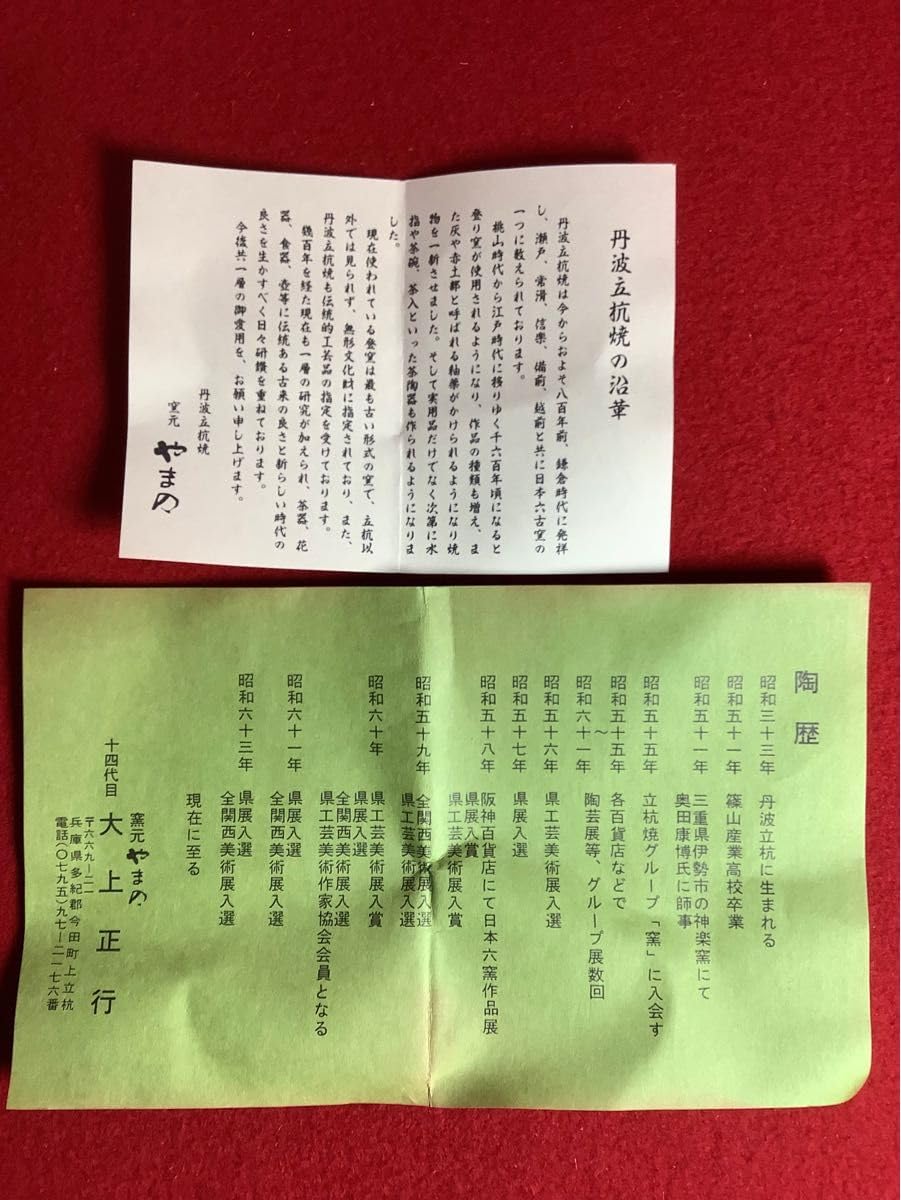 丹波立杭焼の沿革
丹波立杭焼は今からおよそ八百年前、鎌倉時代に発祥
し、瀬戸、常滑、信楽、備前、越前と共に日本六古窯の
一つに数えられております。
桃山時代から江戸時代に移りゆく千六百年頃になると
登り窯が使用されるようになり、作品の種類も増え、ま
た灰や赤土部と呼ばれる釉薬がかけられるようになり焼
物を一新させました。そして実用品だけでなく次第に水
指や茶碗、茶入といった茶陶器も作られるようになりま
した。
現在使われている登窯は最も古い形式の窯で、立杭以
外では見られず、無形文化財に指定されており、また、
丹波立杭焼も伝統的工芸品の指定を受けております。
幾百年を経た現在も一層の研究が加えられ、茶器、花
器、食器、壺等に伝統ある古来の良さと新らしい時代の
良さを生かすべく日々研鑽を重ねております。
今後共一層の御愛用を、お願い申し上げます。
丹波立杭焼
窯元 やまの
陶歴
昭和三十三年 丹波立杭に生まれる
昭和五十一年 篠山産業高校卒業
昭和五十一年 三重県伊勢市の神楽窯にて
奥田康博氏に師事
昭和五十五年 立杭焼グループ「窯」に入会す
昭和五十五年 各百貨店などで
～
昭和六十一年 陶芸展等、グループ展数回
昭和五十六年 県工芸美術展入選
昭和五十七年 県展入選
昭和五十八年 阪神百貨店にて日本六窯作品展
県展入賞
県工芸美術展入賞
昭和五十九年 全関西美術展入選
県工芸美術展入選
昭和六十年 県工芸美術展入賞
県展入選
全関西美術展入選
県工芸美術作家協会会員となる
昭和六十一年 県展入選
全関西美術展入選
昭和六十三年 県展入選
全関西美術展入選
現在に至る
窯元 やまの
十四代目 大上正行
〒六六九―二一
兵庫県多紀郡今田町上立杭
電話(〇七九五)九七―二一七六番